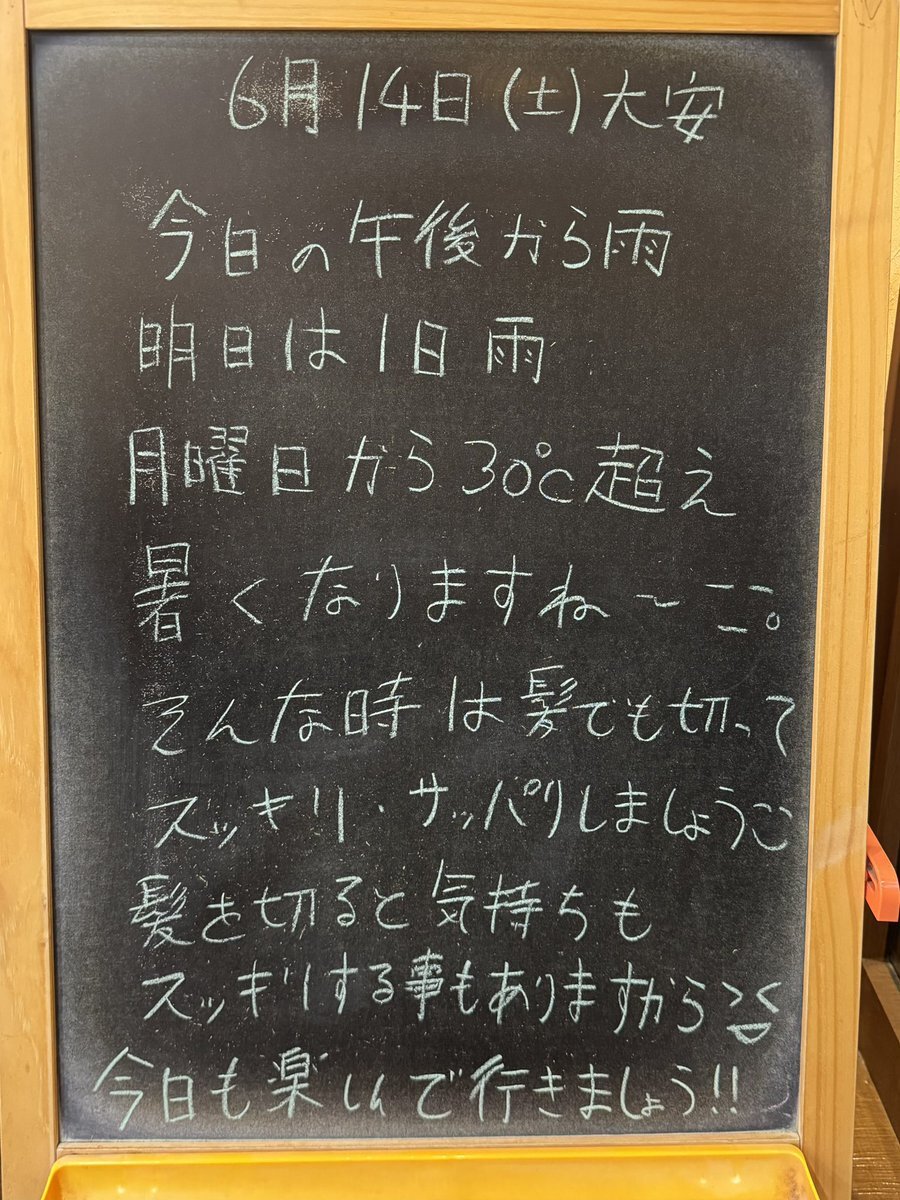 6月14日(土)大安
今日の午後から雨
明日は1日雨
月曜日から30℃超え
暑くなりますね〜
そんな時は髪でも切って
スッキリ・サッパリしましょう
髪を切ると気持ちも
スッキリする事もありますから
今日も楽しんで行きましょう!!